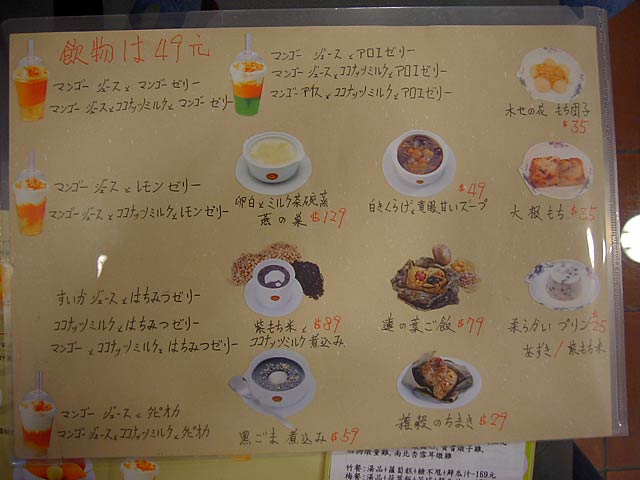 飲物は49元
マンゴー ジュースとマンゴーゼリー
マンゴー ジュースとココナッツミルクと マンゴーゼリー
マンゴー ジュースとアロエゼリー
マンゴー ジュースとココナッツミルクとアロエゼリー
マンゴーアイスとココナッツミルクとアロエゼリー
木せの花 もち団子
$35
マンゴー ジュースとレモンゼリー
マンゴー ジュースとココナッツミルクとレモンゼリー
卵白とミルク茶碗蒸
燕の巣 $129
$49
白きくらげと竜眼甘いスープ
大根もち $35
すいかジュースとはちみつゼリー
ココナッツミルクとはちみつゼリー
マンゴーとココナッツミルクとはちみつゼリー
紫もち米と $89
ココナッツミルク煮込み
蓮の葉ご飯 $79
柔らかいプリン $25
あずき/紫もち米
マンゴー ジュースとタピオカ
マンゴー ジュースとココナッツミルクとタピオカ
黒ごま煮込み $59
雑穀のちまき $29
竹餐:湯品+蘿蔔糕+糖不甩+鮮瓜汁=169元